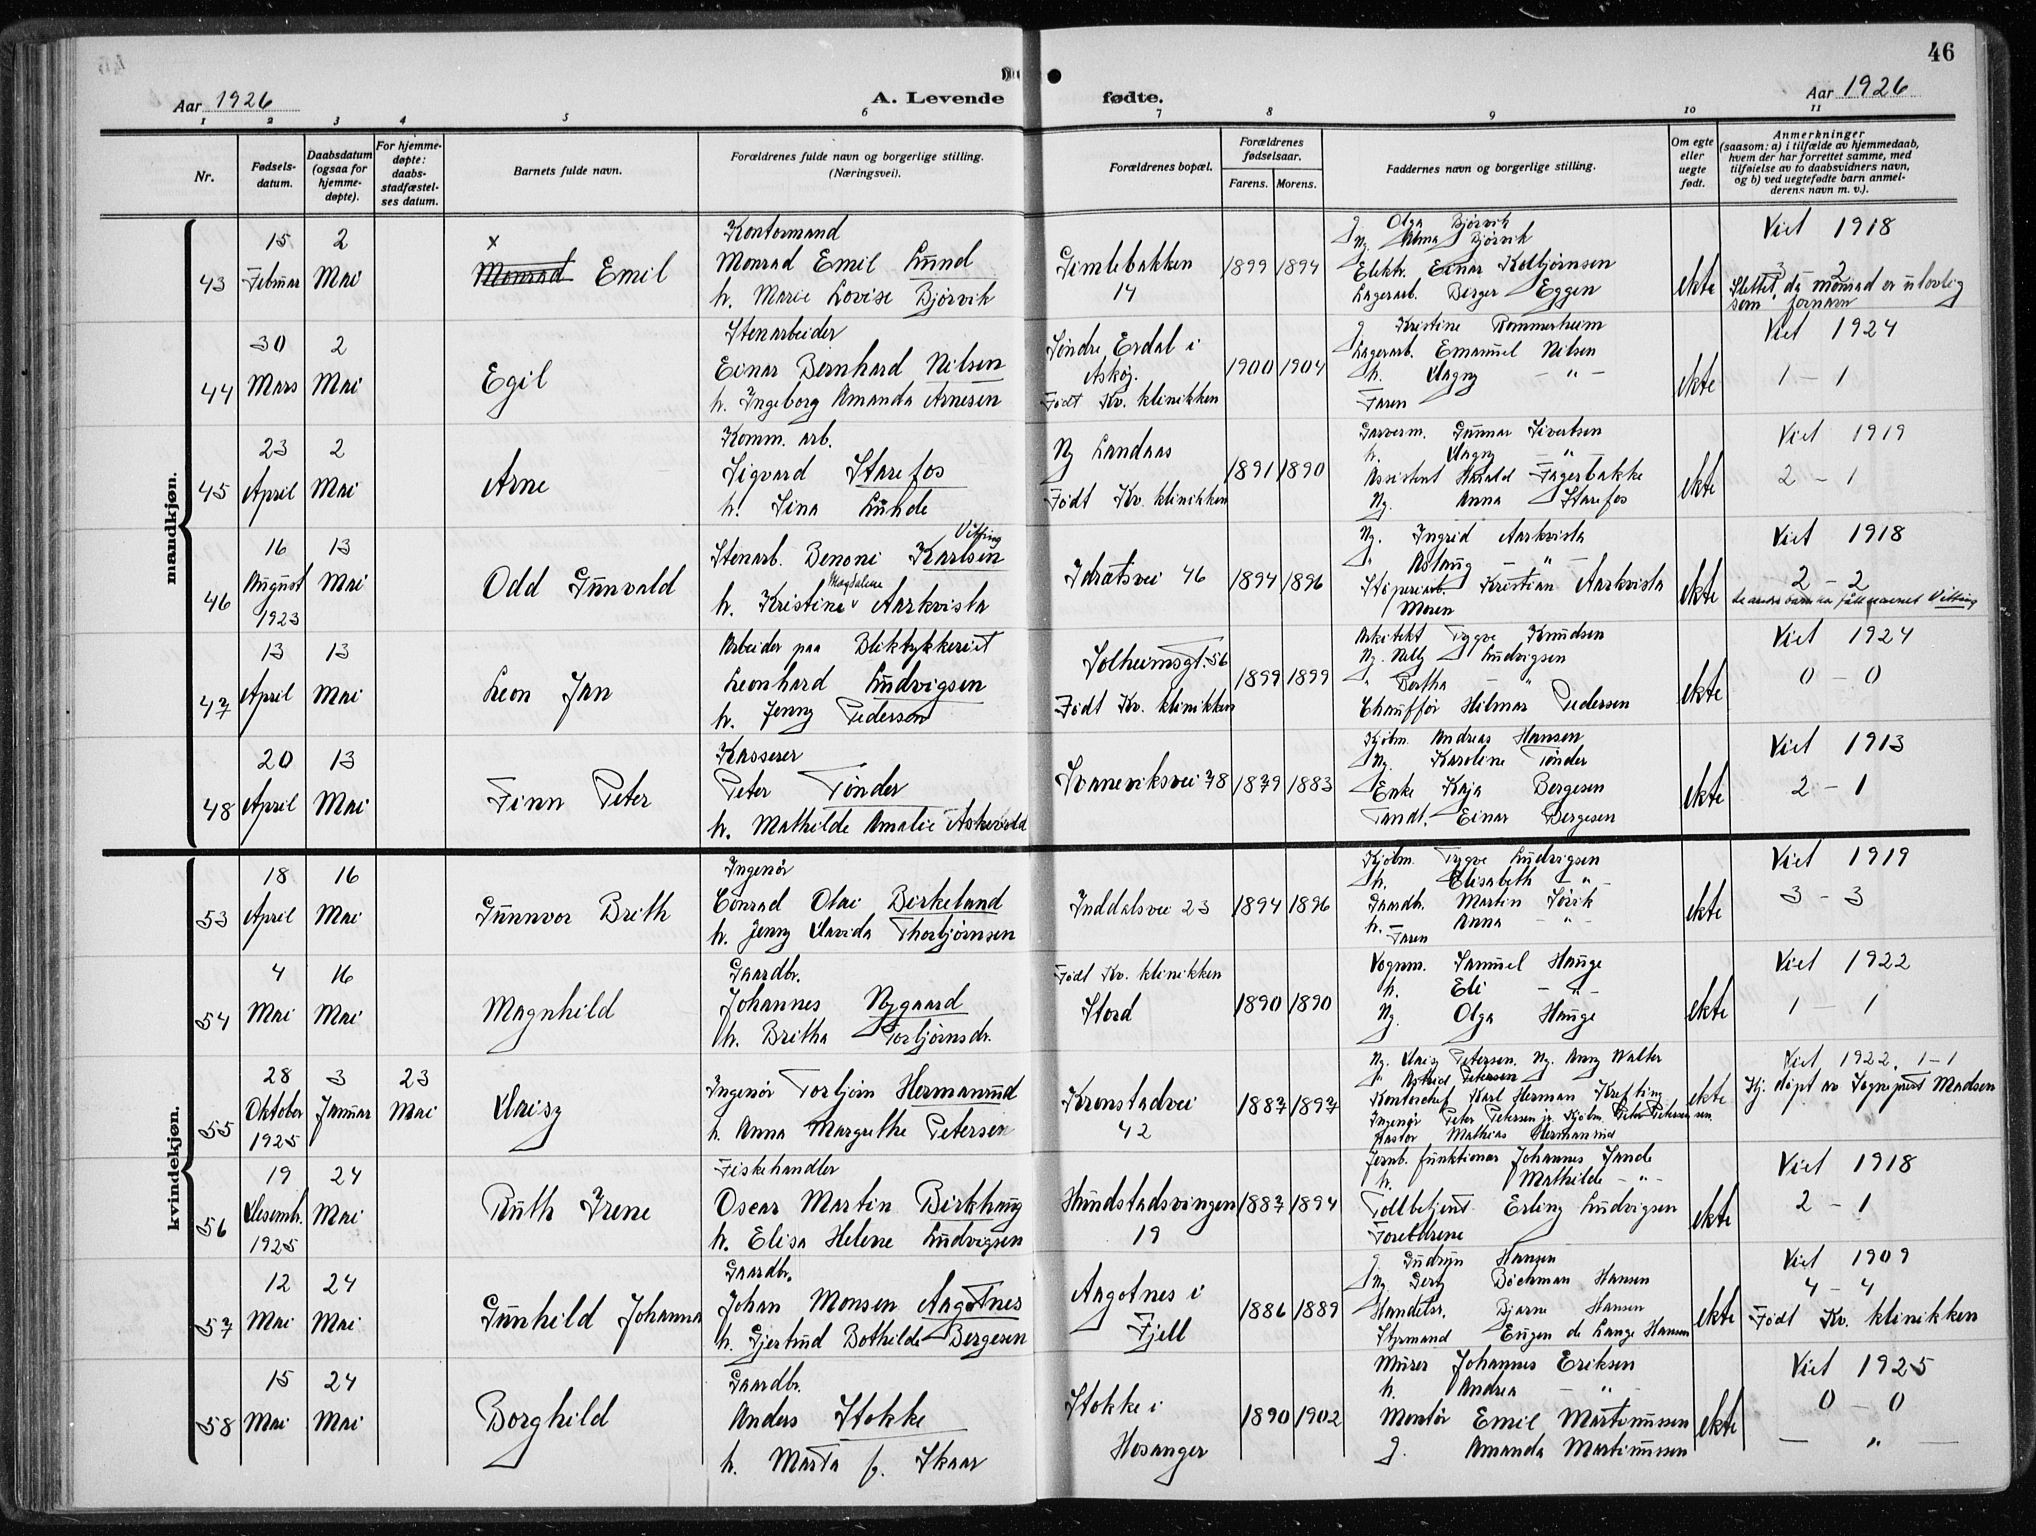 46
Aar 1926
A. Levende fødte.
Aar 1926
1 2 3 4 5 6 7 8 9 10 11
Nr.
Fødsels-datum.
Daabsdatum (ogsaa for hjemme-døpte).
For hjemme-døpte: daabs-stadfæstel-ses datum.
Barnets fulde navn.
Forældrenes fulde navn og borgerlige stilling. (Næringsvei).
Forældrenes bopæl.
Forældrenes fødselsaar.
Farens. Morens.
Faddernes navn og borgerlige stilling.
Om egte eller uegte født.
Anmerkninger
(saasom: a) i tilfælde av hjemmedaab, hvem der har forrettet samme, med tilføielse av to daabsvidners navn, og b) ved uegtefødte barn anmel-derens navn m. v.).
mandkjøn.
43
15 Februar
2 Mai
x
Monrad Emil
Kontormand
Monrad Emil Lund
h. Marie Lovise Bjørvik
Gimlebakken
14
1899 1894
g. Olga Bjørvik
Ng. Alma Bjørvik
Elektr. Einar Kolbjørnsen
Lagerarb. Birger Eggen
ekte
Viet 1918
3 - 2
Slettet, da monrad er ulovlig
som fornavn
44
30 Mars
2 Mai
Egil
Stenarbeider
Einar Bernhard Nilsen
h. Ingeborg Amanda Arnesen
Søndre Erdal i
Askøy.
Født Kv. klinikken
1900 1904
g. Kristine Rommerheim
Lagerarb. Emanuel Nilsen
h. Dagny - " -
Faren
ekte
Viet 1924
1 - 1
45
23 April
2 Mai
Arne
Komm. arb.
Sigvard Starefos
h. Sina Lunde
Ny Landaas
Født Kv. klinikken
1891 1890
Garverm. Gunnar Sivertsen
h. Dagny - " -
Assistent Harald Fagerbakke
Ng. Anna Starefos
ekte
Viet 1919
2 - 1
46
16 August 1923
13 Mai
Odd Gunvald
Vitting
Stenarb. Benoni Karlsen
Magdalene
h. Kristine Aarkvisla
Idrætsvei 46
1894 1896
Ng. Ingrid Aarkvisla
" Aslaug - " -
Støperiarb. Kristian Aarkvisla
Moren
ekte
Viet 1918
2 - 2
47
13 April
13 Mai
Leon Jan
Arbeider paa Bliktrykkeriet
Leonhard Ludvigsen
h. Jenny Pedersen
Solheimsgt. 56
Født Kv. klinikken
1899 1899
Arkitekt Trygve Knudsen
Ng. Nelly Ludvigsen
" Bertha - " -
Chauffør Hilmar Pedersen
ekte
Viet 1924
0 - 0
48
20 April
13 Mai
Finn Peter
Kasserer
Peter Tønder
h. Mathilde Amalie Askevold
Svaneviksvei 78
1879 1883
Kjøbm. Andreas Hansen
Ng. Karoline Tønder
Enke Kaja Bergesen
Tandt. Einar Bergesen
ekte
Viet 1913
2 - 1
kvindekjøn.
53
18 April
16 Mai
Gunnvor Brith
Ingeniør
Conrad Olai Birkeland
h. Jenny Davida Thorbjørnsen
Inddalsvei 23
1894 1896
Kjøbm. Trygve Ludvigsen
h. Elisabeth - " -
Gaardb. Martin Søvik
h. Anna - " -
Faren
ekte
Viet 1919
3 - 3
54
4 Mai
16 Mai
Magnhild
Gaardbr.
Johannes Nygaard
h. Britha Torbjørnsdr.
Født Kv. klinikken
Stord
1890 1890
Vognm. Samuel Hauge
h. Eli - " -
Ng. Olga Hauge
ekte
Viet 1922
1 - 1
55
28 Oktober 1925
3 Januar
23 Mai
Daisy
Ingeniør Torbjørn Hermansrud
h. Anna Margrethe Petersen
Kronstadvei
42
1887 1897
Ng. Daisy Petersen, Ng. Anny Walter
g. Astrid Petersen
Kontorchef Karl Herman Krefting
Ingeniør Peter Petersen jr. Kjøbm. Peter Petersen sen.
Pastor Mathias Hermansrud
ekte
Viet 1922. 1-1
Hj. døpt av Sogneprest Madsen
56
19 Desemb. 1925
24 Mai
Ruth Irene
Fiskehandler
Oscar Martin Birkhaug
h. Elisa Helene Ludvigsen
Hundstadsvingen
19
1887 1894
Jernb. funktionær Johannes Sande
h. Mathilde - " -
Tollbetjent Erling Ludvigsen
Foreldrene
ekte
Viet 1918
2 - 1
57
12 Mai
24 Mai
Gunhild Johanna
Gaardbr.
Johan Monsen Angotnes
h. Gjertrud Bothilde Bergesen
Aagotnes i
Fjell
1886 1889
g. Gudrun Hansen
Ng. Gerd Bøckman Hansen
Handelsr. Bjarne Hansen
Styrmand Eugen de Lange Hansen
ekte
Viet 1909
4 - 4
Født Kv. klinikken
58
15 Mai
24 Mai
Borghild
Gaardbr.
Anders Stokke
h. Marta f. Skaar
Stokke i
Hosanger
1890 1902
Murer Johannes Eriksen
h. Andrea - " -
Montør Emil Martinussen
g. Amanda Martinussen
ekte
Viet 1925
0 - 0
— " —